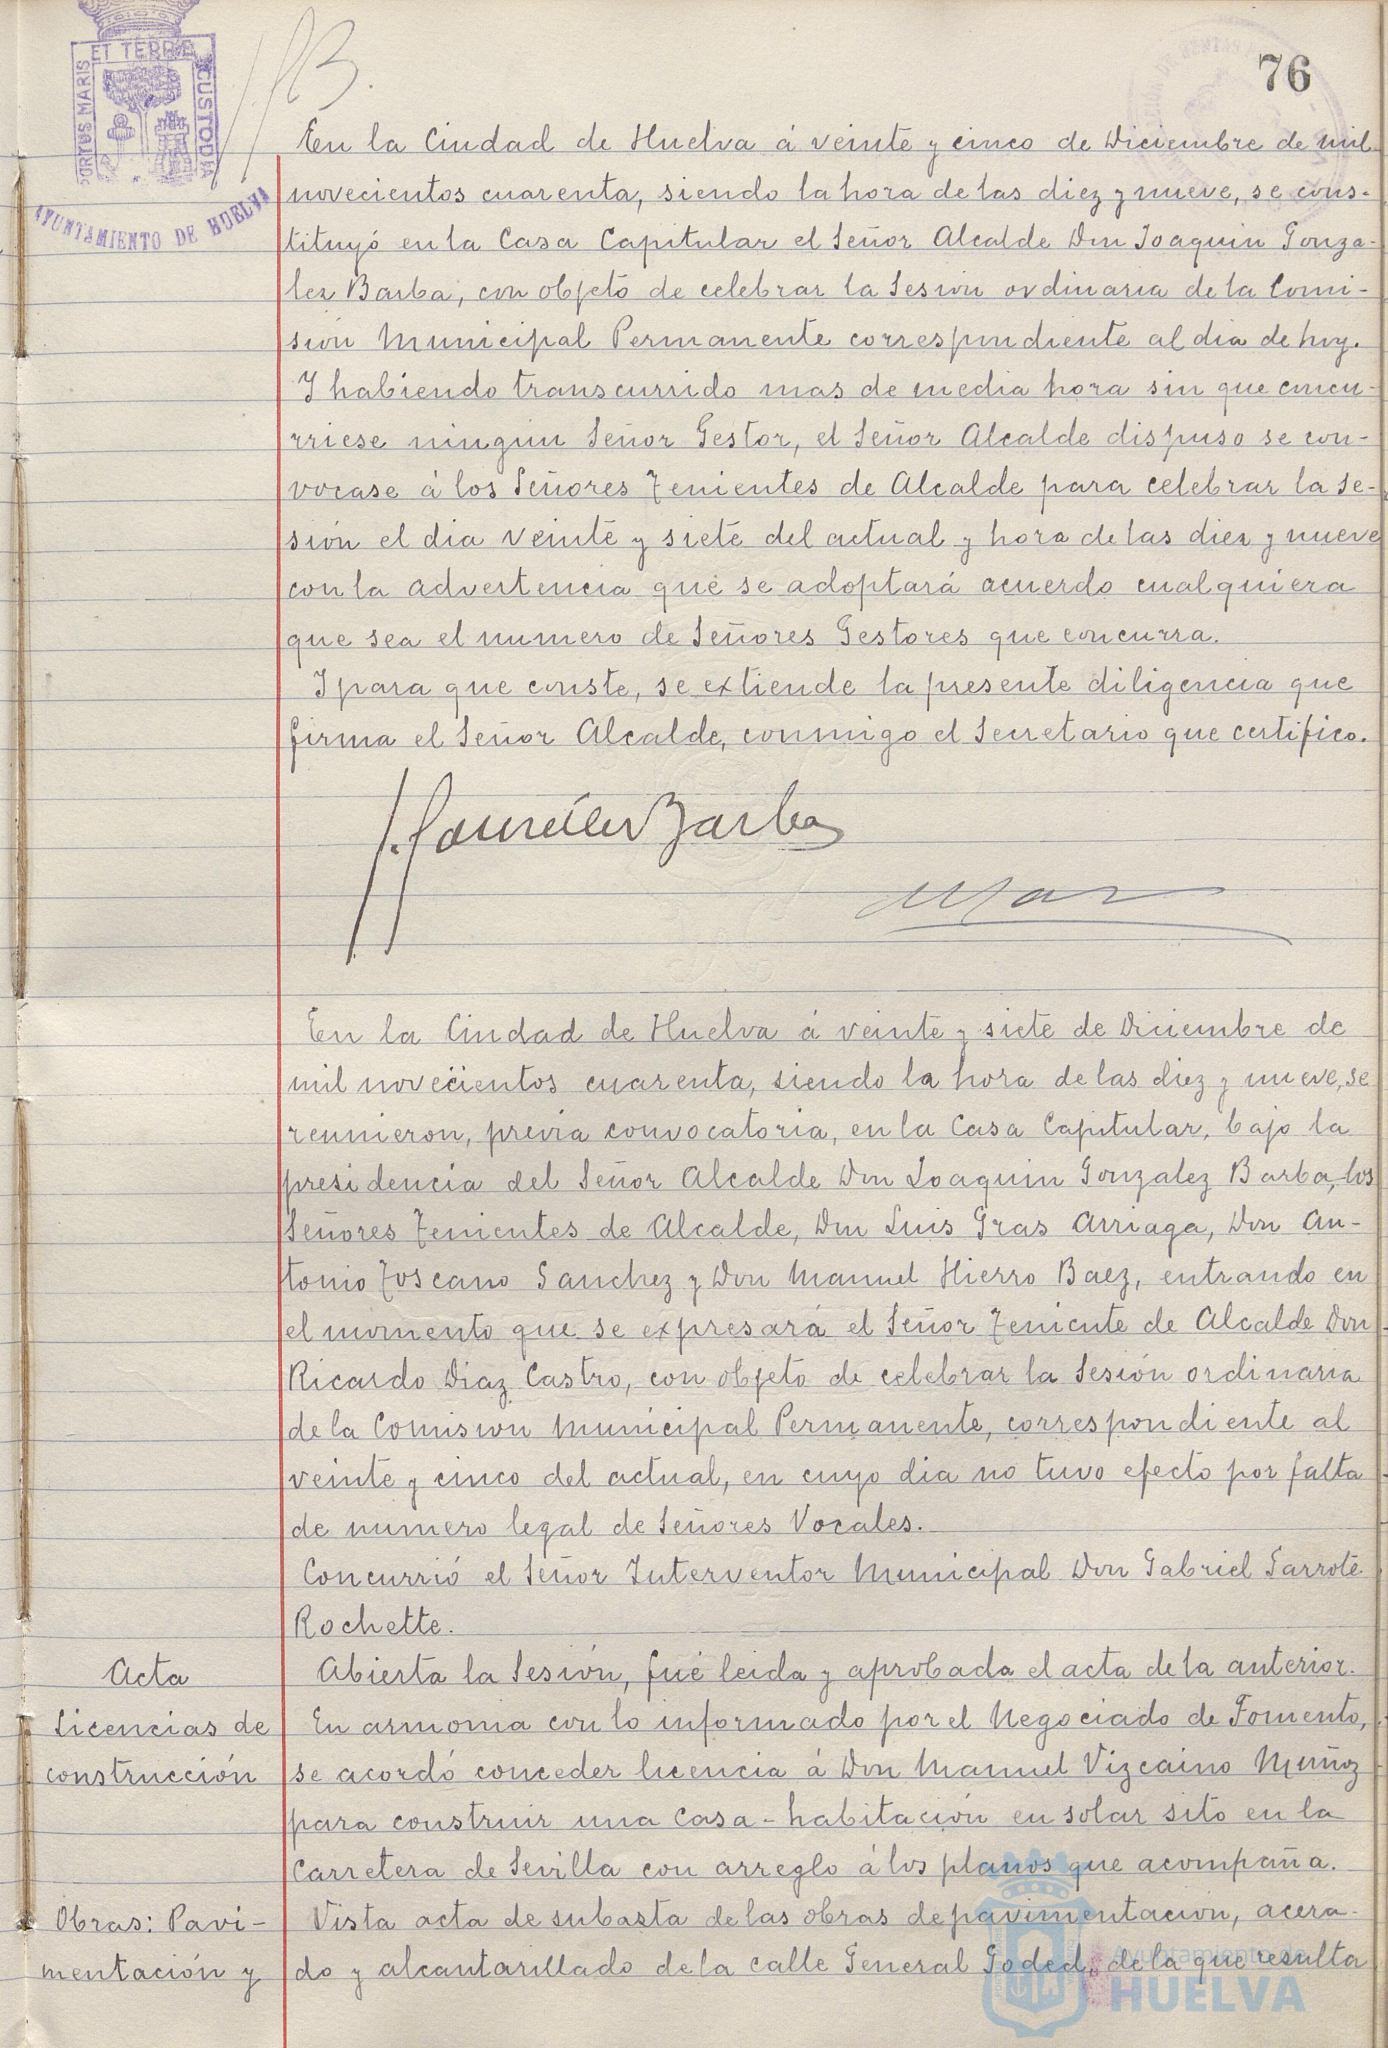 PORTUS MARIS ET TERRE CUSTODIA
AYUNTAMIENTO DE HUELVA
76
En la Ciudad de Huelva á veinte y cinco de Diciembre de mil
novecientos cuarenta, siendo la hora de las diez y nueve, se cons-
tituyó en la Casa Capitular el Señor Alcalde Don Joaquin Gonza-
lez Barba, con objeto de celebrar la Sesión ordinaria de la Comi-
sión Municipal Permanente correspondiente al dia de hoy.
Y habiendo transcurrido mas de media hora sin que concu-
rriese ningun Señor Gestor, el Señor Alcalde dispuso se con-
vocase á los Señores Tenientes de Alcalde para celebrar la Se-
sión el dia veinte y siete del actual y hora de las diez y nueve
con la advertencia que se adoptará acuerdo cualquiera
que sea el numero de Señores Gestores que concurra.
Y para que conste, se extiende la presente diligencia que
firma el Señor Alcalde, conmigo el Secretario que certifico.
J. González Barba
En la Ciudad de Huelva á veinte y siete de Diciembre de
mil novecientos cuarenta, siendo la hora de las diez y nueve, se
reunieron, previa convocatoria, en la Casa Capitular, bajo la
presidencia del Señor Alcalde Don Joaquin Gonzalez Barba, los
Señores Tenientes de Alcalde, Don Luis Gras Arriaga, Don An-
tonio Toscano Sanchez y Don Manuel Hierro Baez, entrando en
el momento que se expresará el Señor Teniente de Alcalde Don
Ricardo Diaz Castro, con objeto de celebrar la Sesión ordinaria
de la Comision Municipal Permanente, correspondiente al
veinte y cinco del actual, en cuyo dia no tuvo efecto por falta
de numero legal de Señores Vocales.
Concurrió el Señor Interventor Municipal Don Gabriel Garrote
Rochette.
Acta Abierta la Sesión, fué leida y aprobada el acta de la anterior.
Licencias de En armonia con lo informado por el Negociado de Fomento,
construcción se acordó conceder licencia á Don Manuel Vizcaino Muñoz
para construir una casa-habitación en solar sito en la
Carretera de Sevilla con arreglo á los planos que acompaña.
Obras: Pavi- Vista acta de subasta de las obras de pavimentación, acera-
mentación y do y alcantarillado de la calle General Goded, de la que resulta
Ayuntamiento de
HUELVA